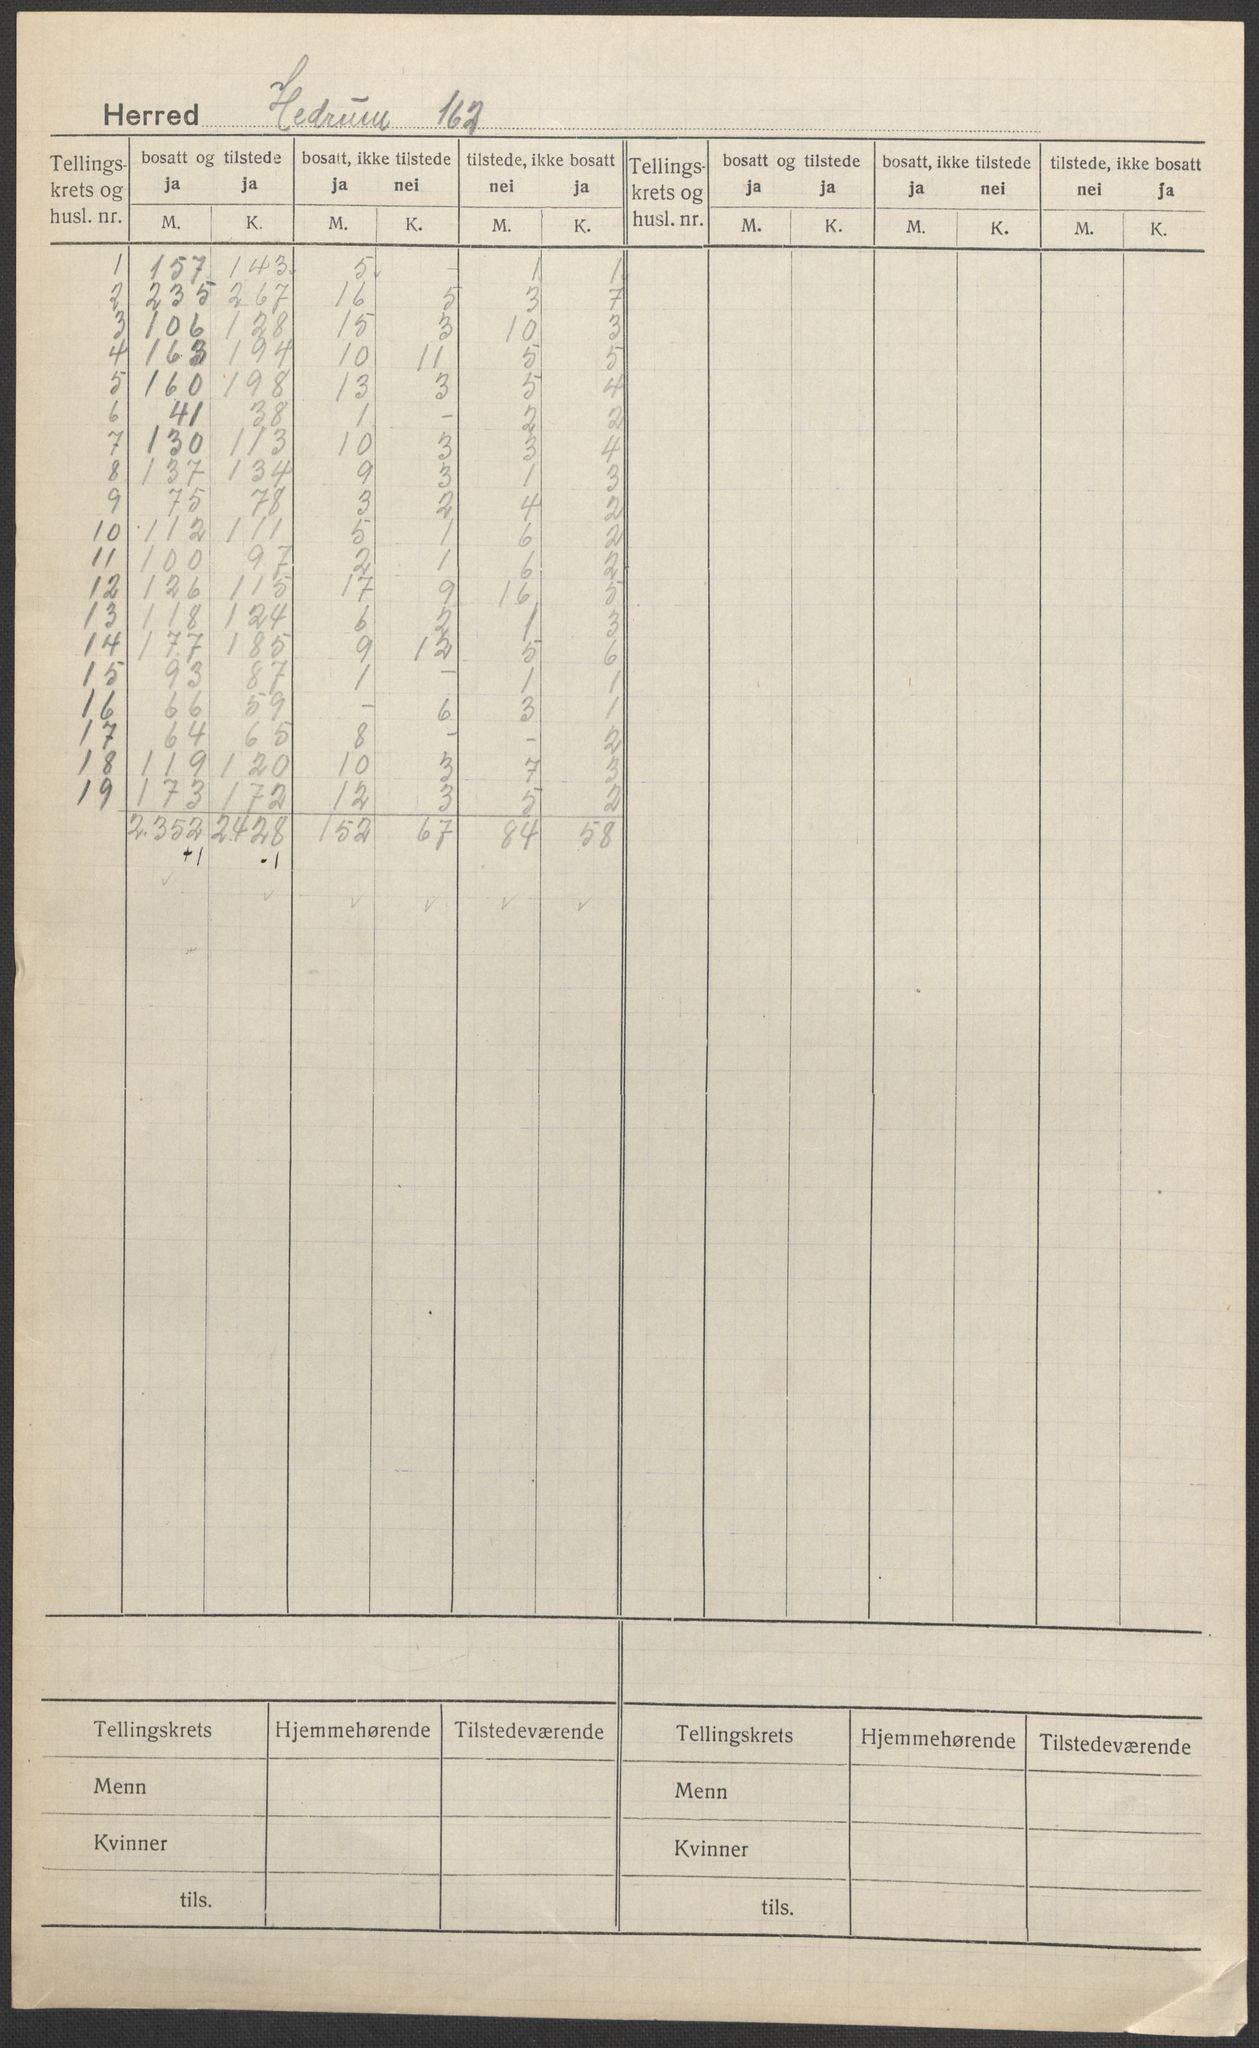 Herred Hedrum 162
Tellings- krets og husl. nr. bosatt og tilstede bosatt, ikke tilstede tilstede, ikke bosatt Tellings- krets og husl. nr. bosatt og tilstede bosatt, ikke tilstede tilstede, ikke bosatt
ja ja ja nei nei ja ja ja ja nei nei ja
M. K. M. K. M. K. M. K. M. K. M. K.
1 157 143 5 - 1 1
2 235 267 16 5 3 7
3 106 128 15 3 10 3
4 163 194 10 11 5 5
5 160 198 13 3 5 4
6 41 38 1 - 2 2
7 130 113 10 3 3 4
8 137 134 9 3 1 3
9 75 78 3 2 4 2
10 112 111 5 1 6 2
11 100 97 2 1 6 2
12 126 115 17 9 16 5
13 118 124 6 2 1 3
14 177 185 9 12 5 6
15 93 87 1 - 1 1
16 66 59 - 6 3 1
17 64 65 8 - - 2
18 119 120 10 3 7 3
19 173 172 12 3 5 2
2.352 2.428 152 67 84 58
+1 -1
Tellingskrets Hjemmehørende Tilstedeværende Tellingskrets Hjemmehørende Tilstedeværende
Menn Menn
Kvinner Kvinner
tils. tils.